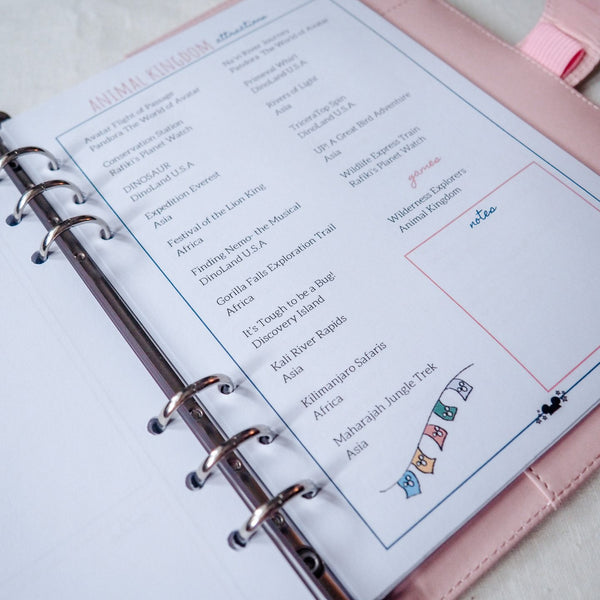 ANIMAL KINGDOM attractions
Avatar Flight of Passage
Pandora The World of Avatar
Conservation Station
Rafiki's Planet Watch
DINOSAUR
DinoLand U.S.A
Expedition Everest
Asia
Festival of the Lion King
Africa
Finding Nemo- the Musical
DinoLand U.S.A
Gorilla Falls Exploration Trail
Africa
It's Tough to be a Bug!
Discovery Island
Kali River Rapids
Asia
Kilimanjaro Safaris
Africa
Maharajah Jungle Trek
Asia
Na'vi River Journey
Pandora- The World of Avatar
Primeval Whirl
DinoLand U.S.A
Rivers of Light
Asia
TriceraTop Spin
DinoLand U.S.A
UP! A Great Bird Adventure
Asia
Wildlife Express Train
Rafiki's Planet Watch
games
Wilderness Explorers
Animal Kingdom
notes